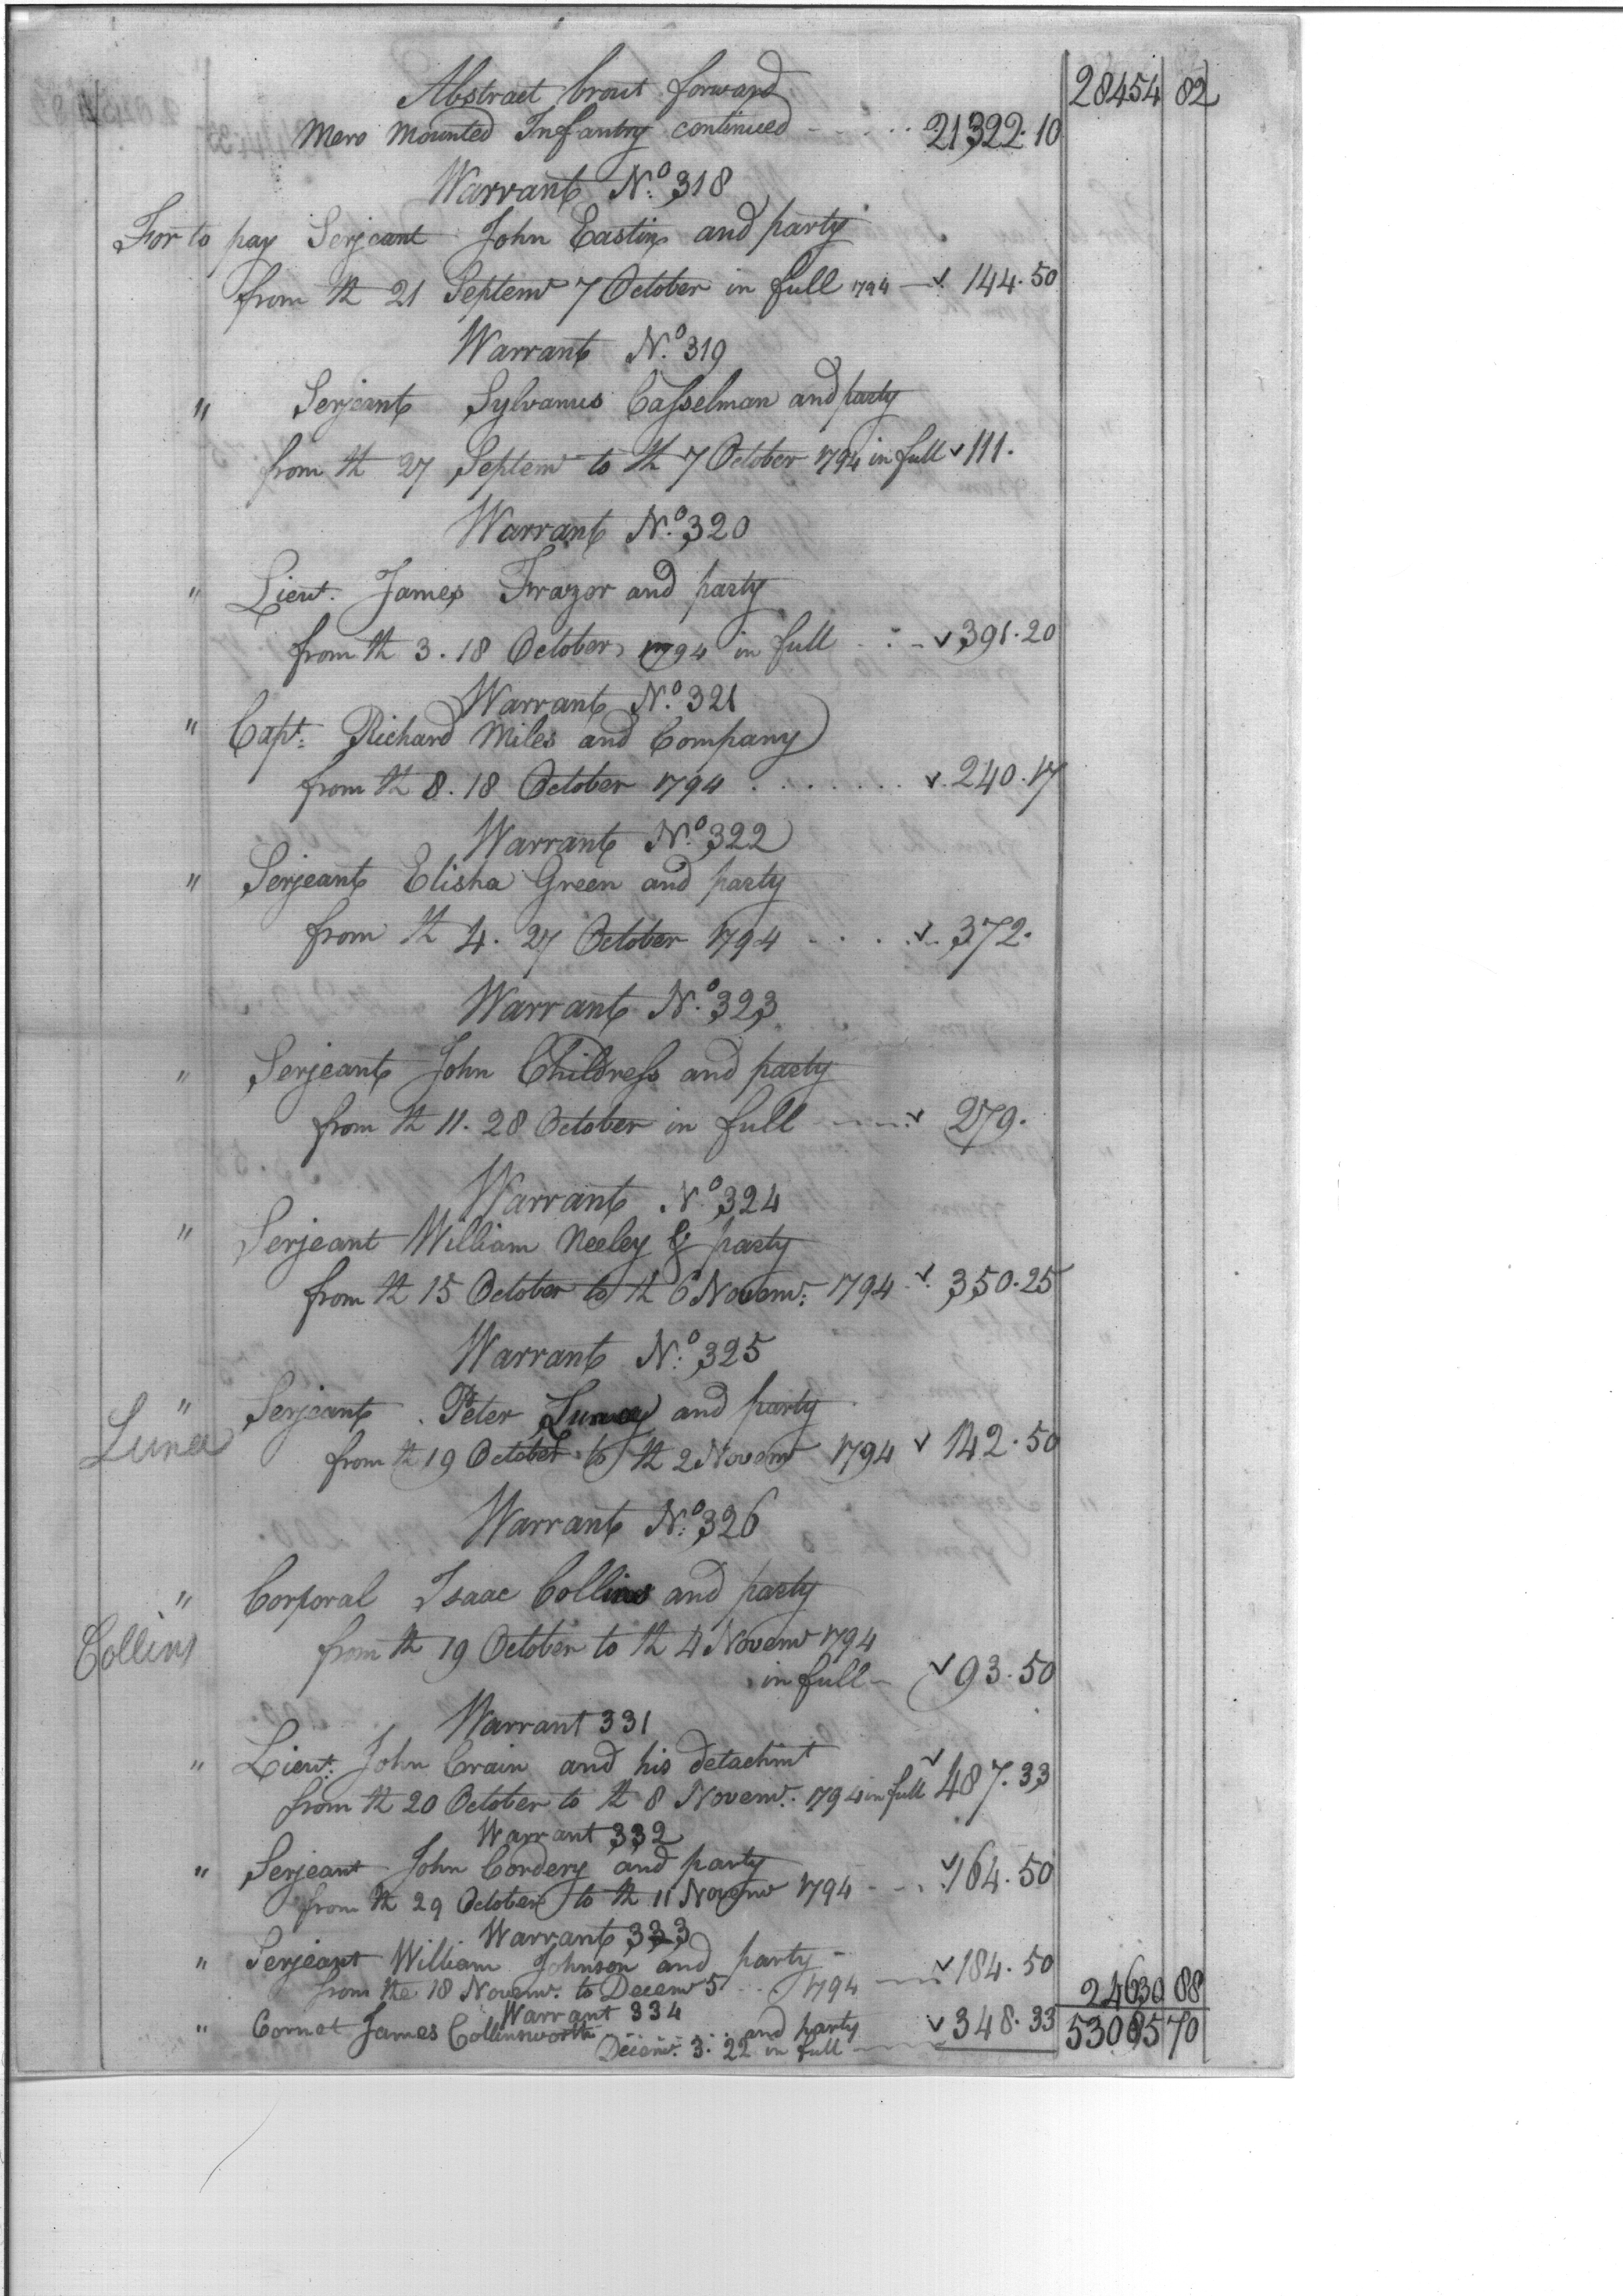 Abstract brout forward 28454 82
Mero Mounted Infantry continued - - - - 21322.10
Warrant No. 318
For to pay Serjeant John Eastin and party
from th 21 Septemr 7 October in full 1794 - 144.50
Warrant No. 319
" Serjeant Sylvanus Casselman and party
from th 27 Septemr to th 7 October 1794 in full 111.
Warrant No. 320
" Lieut. James Frazor and party
from th 3. 18 October, 1794 in full - 391.20
Warrant No. 321
" Capt. Richard Miles and Company
from th 8. 18 October 1794 . . . . . . . 240.17
Warrant No. 322
" Serjeant Elisha Green and party
from th 4. 27 October 1794 . . . . 372.
Warrant No. 323
" Serjeant John Childress and party
from th 11. 28 October in full - - - 279.
Warrant No. 324
" Serjeant William Neeley & party
from th 15 October to th 6 Novemr: 1794 . 350.25
Warrant No. 325
" Serjeant Peter Luney and party
Luna
from th 19 October to th 2 Novemr 1794 142.50
Warrant No. 326
" Corporal Isaac Collins and party
Collins
from th 19 October to th 4 Novemr 1794
in full - 93.50
Warrant 331
" Lieut. John Crain and his detachmt
from th 20 October to th 8 Novemr. 1794 in full 487.33
Warrant 332
" Serjeant John Cordery and party
from th 29 October to th 11 Novemr 1794 - - . 164.50
Warrant 333
" Serjeant William Johnson and party -
from the 18 Novemr. to Decemr 5 . . 1794 - 184.50
24630 88
Warrant 334
" Cornet James Collinsworth - - - - and party 348.33
53085 70
Decemr. 3. 22 in full -